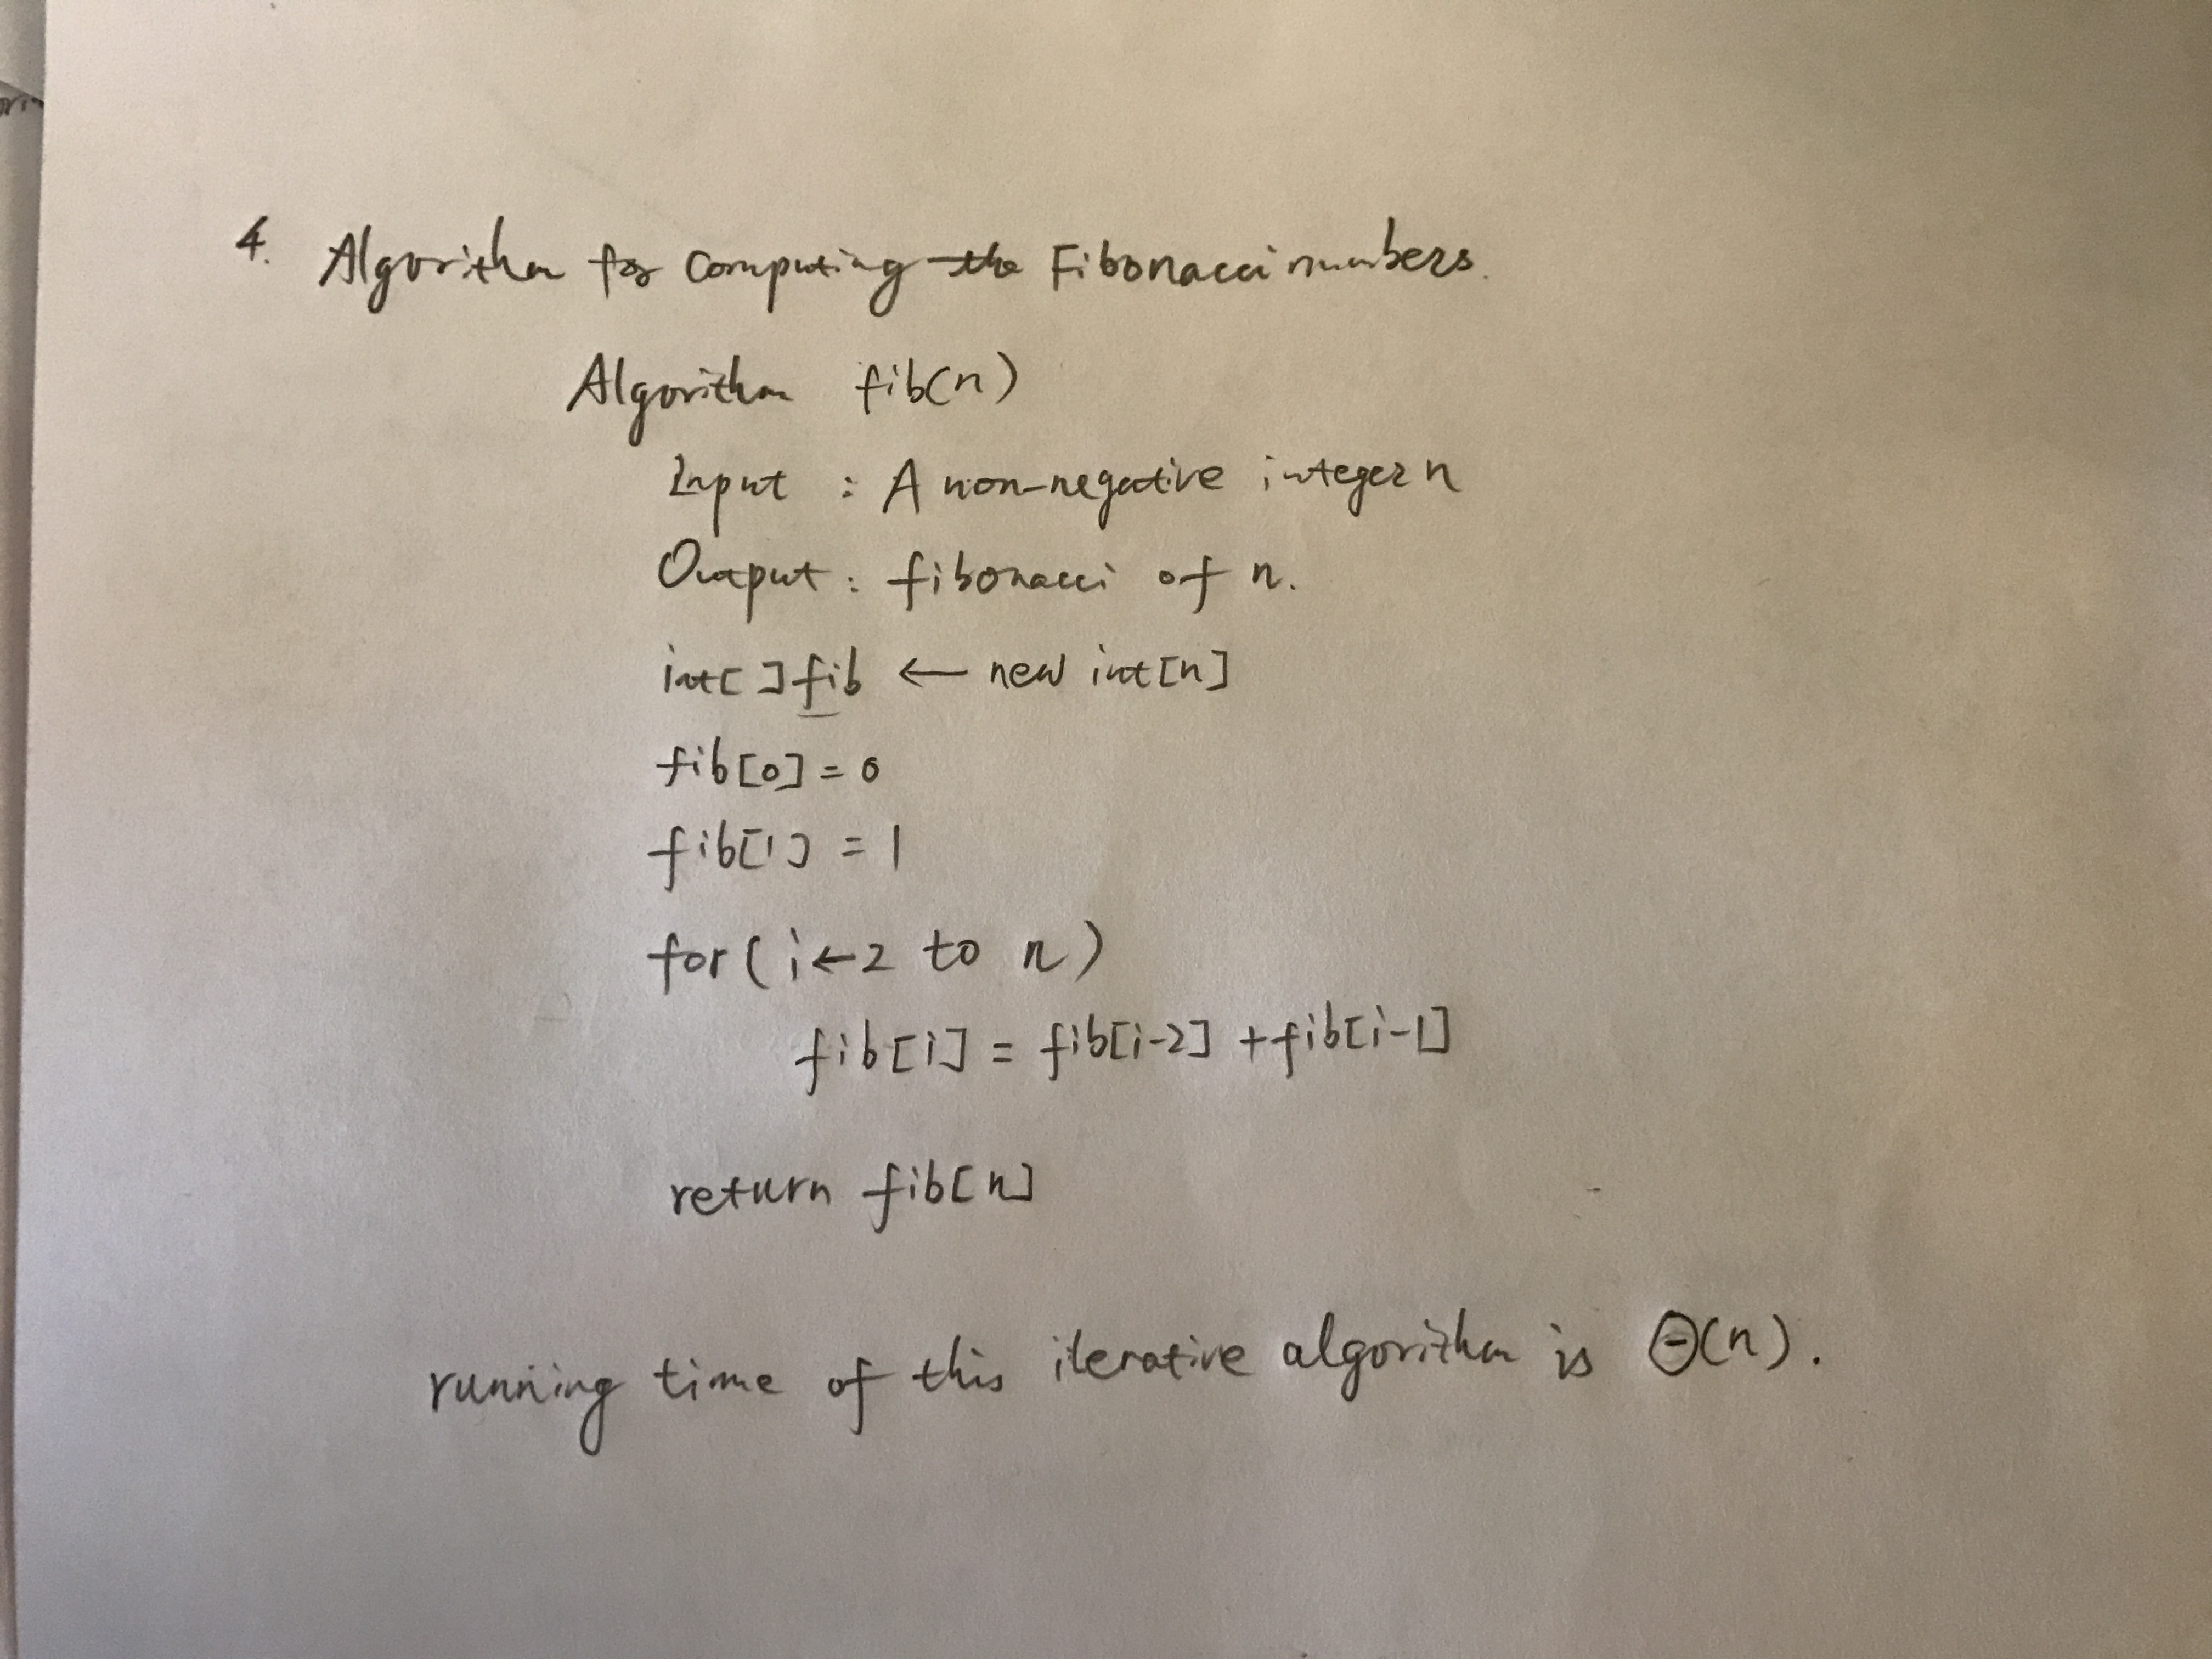 4. Algorithm for Computing the Fibonacci numbers.
Algorithm fib(n)
Input : A non-negative integer n
Output : fibonacci of n.
int[ ] fib ← new int[n]
fib[0] = 0
fib[1] = 1
for (i ← 2 to n)
fib[i] = fib[i-2] + fib[i-1]
return fib[n]
running time of this iterative algorithm is Θ(n).